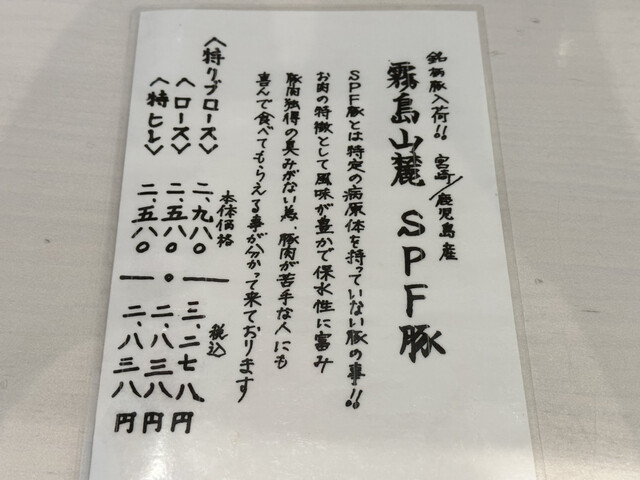 銘柄豚入荷!! 宮崎/鹿児島産
霧島山麓 SPF豚
SPF豚とは特定の病原体を持っていない豚の事!!
お肉の特徴として風味が豊かで保水性に富み
豚肉独得の臭みがない為、豚肉が苦手な人にも
喜んで食べてもらえる事が分かって来ております
本体価格 税込
〈特リブロース〉 二、九八〇 ― 三、二七八円
〈ロース〉 二、五八〇 • 二、八三八円
〈特ヒレ〉 二、五八〇 ― 二、八三八円